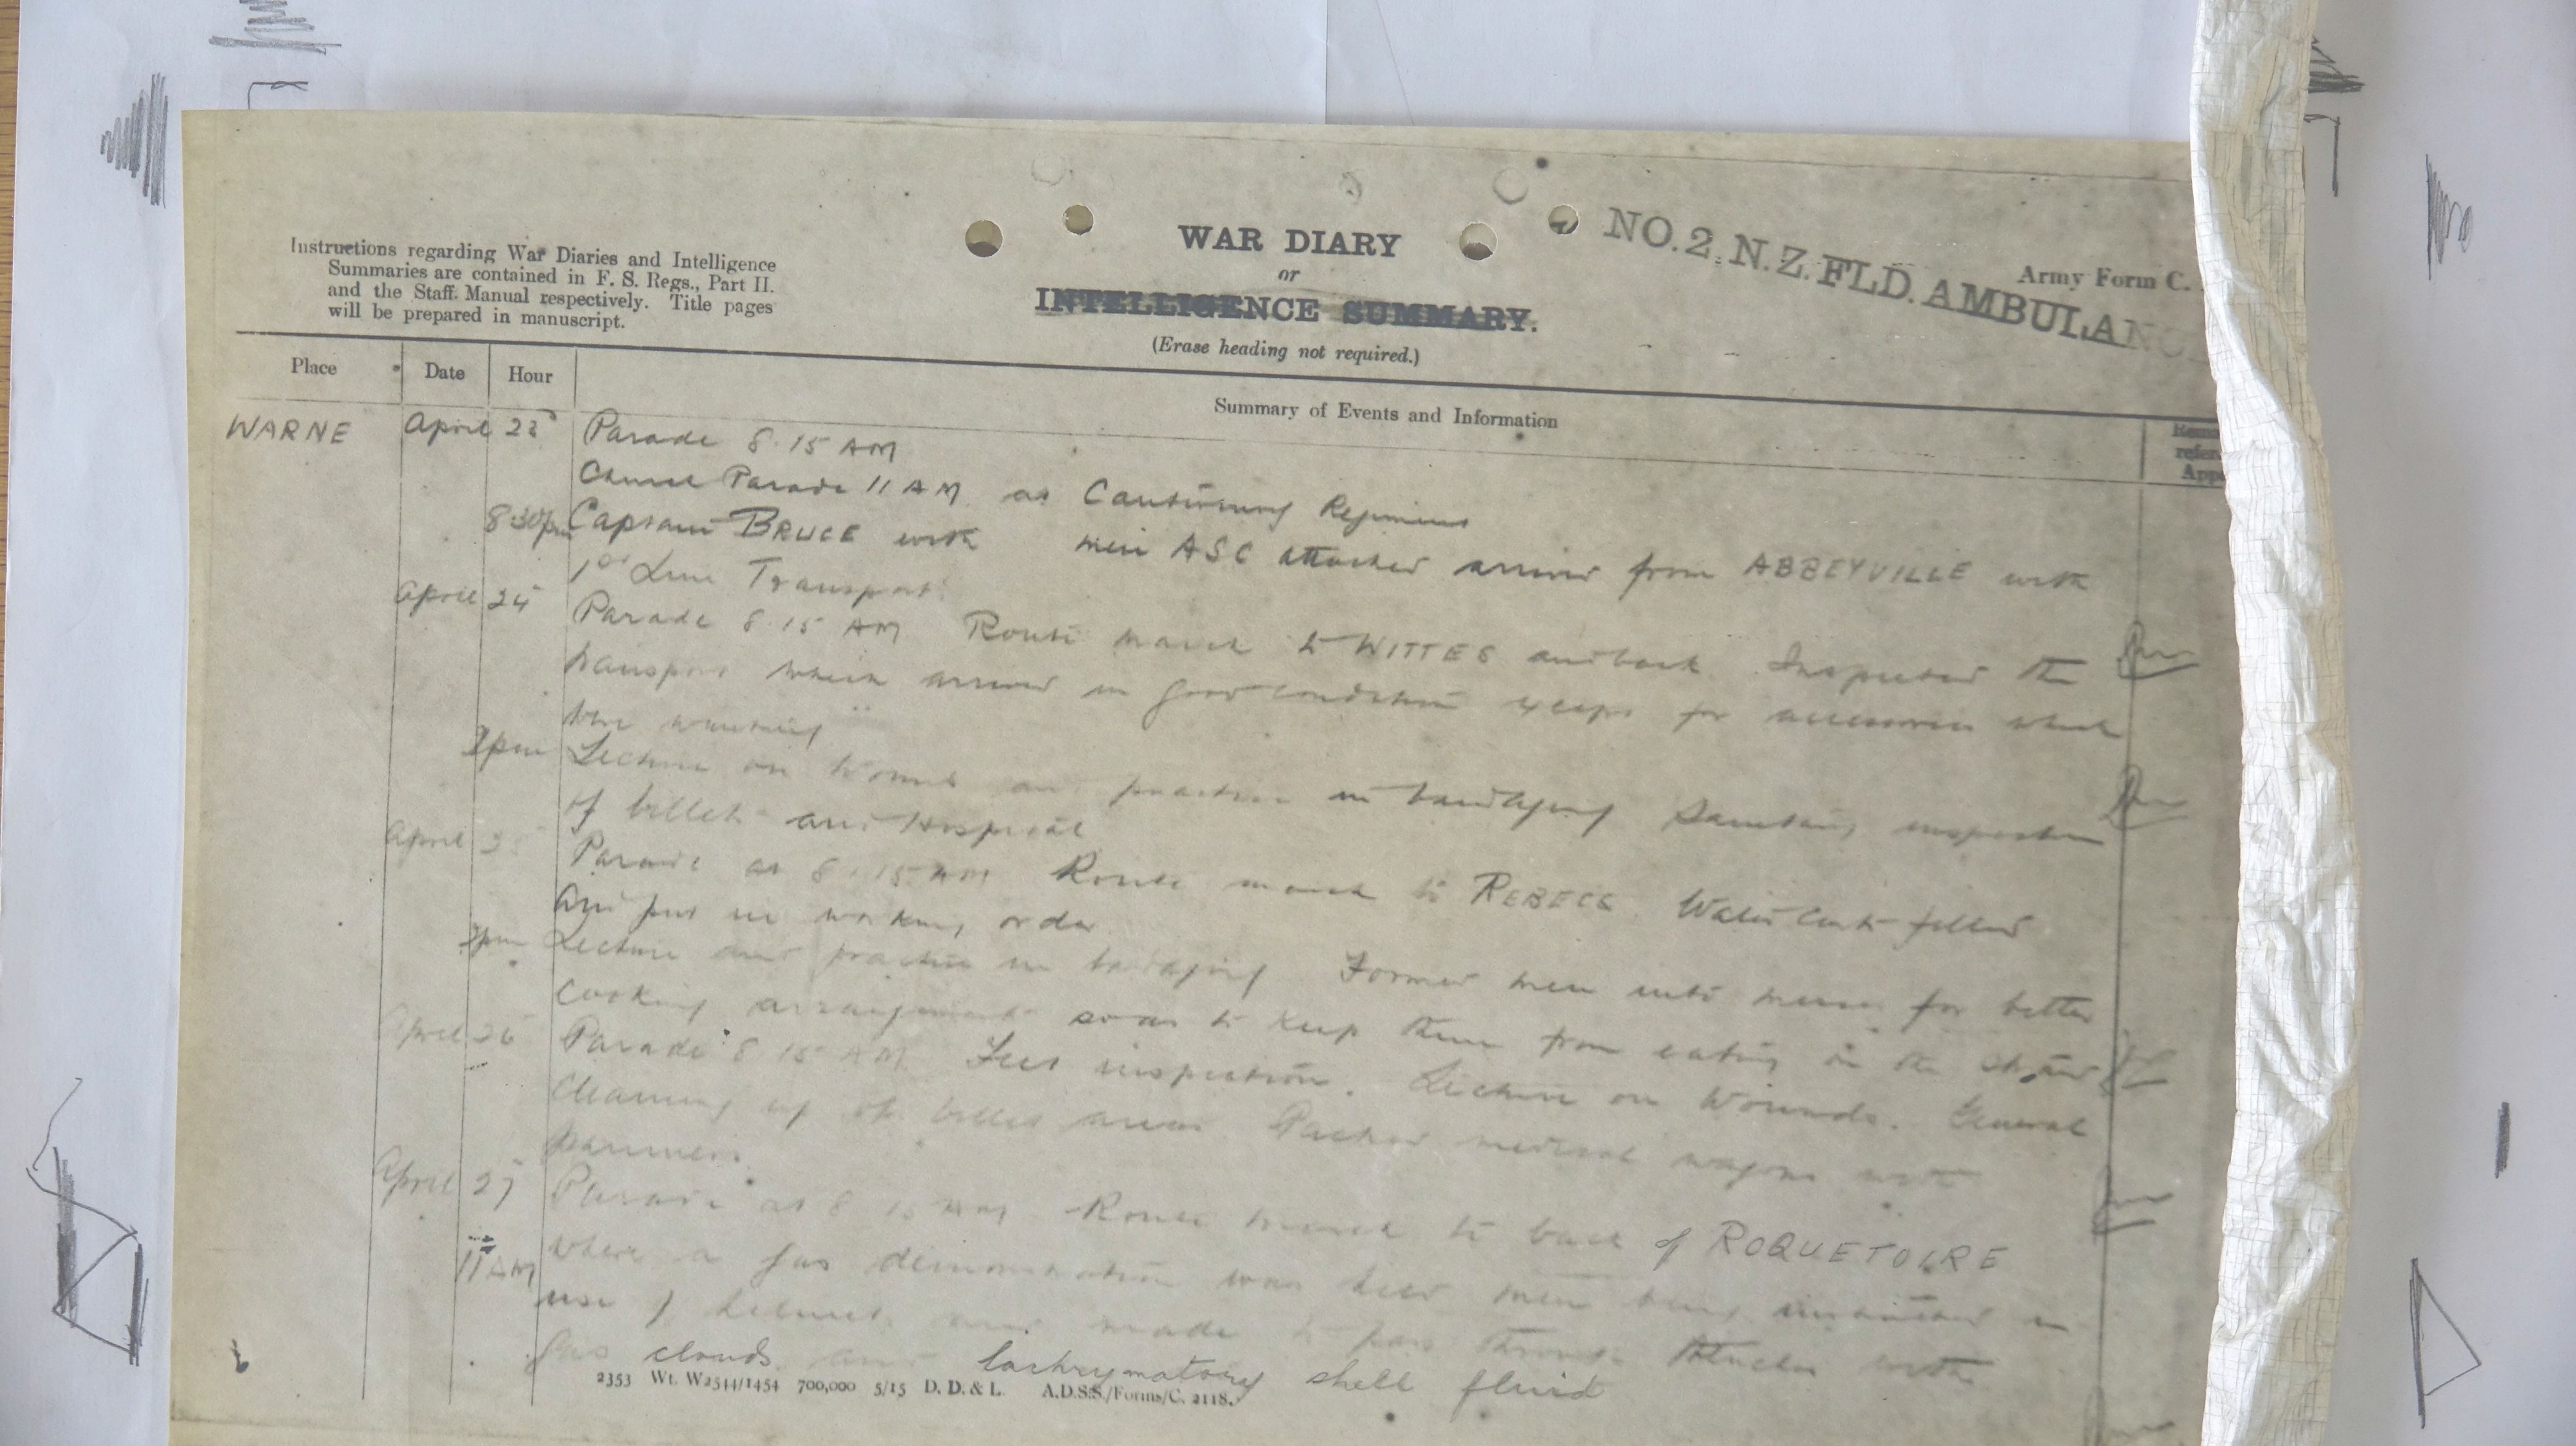 NO. 2. N.Z. FLD. AMBULANC
Army Form C.
Instructions regarding War Diaries and Intelligence
Summaries are contained in F. S. Regs., Part II.
and the Staff Manual respectively. Title pages
will be prepared in manuscript.
WAR DIARY
or
INTELLIGENCE SUMMARY.
(Erase heading not required.)
Place Date Hour
Summary of Events and Information
WARNE April 23 Parade 8.15 AM
Church Parade 11 AM as Regiment
8.30pm Captain BRUCE with men ASC attached arrived from ABBEYVILLE with
1st Line Transport.
April 24 Parade 8.15 AM Route march to WITTES and back. Inspected the
transport which arrived in good condition except for accessories which
were wanting
2pm Lecture on Wounds and practice in bandaging Sanitary inspection
of billets and Hospital
April Parade at 8.15 AM Route march to REBECK. Water Carts filled
and put in working order
2pm Lecture and practice in bandaging Formed men into messes for better
cooking arrangements so as to keep them from eating in the
April 26 Parade 8.15 AM. Feet inspection. Lecture on Wounds. General
cleaning up of billet areas Packed medical wagons with
panniers.
April 27 Parade at 8.15 AM Route march to back of ROQUETOIRE
11 AM where a gas demonstration was held men being instructed in
use of helmets and made to pass through trenches with
gas clouds and lachrymatory shell fluid
2353 Wt. W2544/1454 700,000 5/15 D. D. & L. A.D.S.S./Forms/C. 2118.